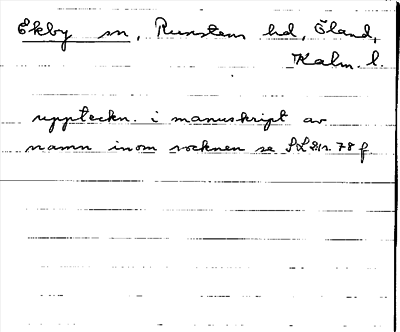 Ekby sn, Runstens hd, Öland,
Kalm. l.
uppteckn. i manuskript av
namn inom socknen se SL 78 f